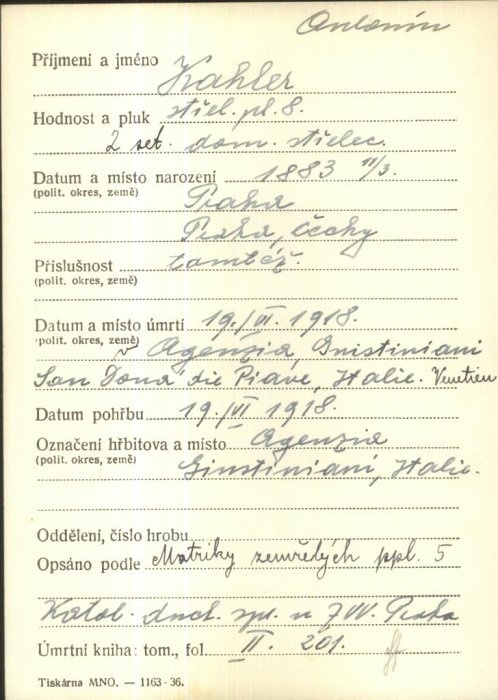 Antonín
Příjmení a jméno Kahler
Hodnost a pluk střel. pl. 8.
2 set. dom. střelec.
Datum a místo narození 1883 11/3.
(polit. okres, země) Praha
Praha, Čechy
Příslušnost tamtéž.
(polit. okres, země)
Datum a místo úmrtí 19./VI. 1918.
(polit. okres, země) v Agenzia, Gnistiniani
San Doná die Piave, Italie. Venetien
Datum pohřbu 19./VI 1918.
Označení hřbitova a místo Agenzia
(polit. okres, země) Ginstiniani, Italie.
Oddělení, číslo hrobu
Opsáno podle Matriky zemřelých ppl. 5
Katol. duch. spr. u ZVV. Praha
Úmrtní kniha: tom., fol. II. 201.
Tiskárna MNO. — 1163-36.